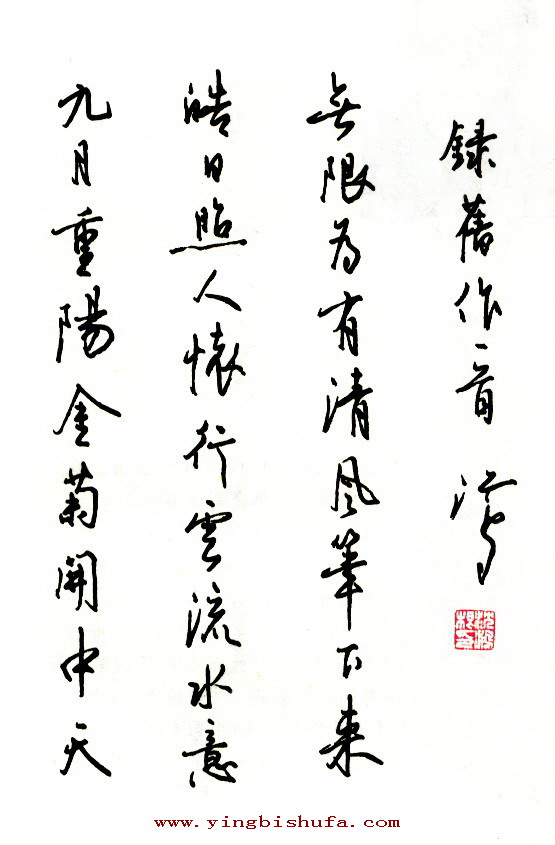 九月重陽金菊開中天
皓日照人懷行雲流水意
無限為有清風筆下來
錄舊作一首 鴻
www.yingbishufa.com